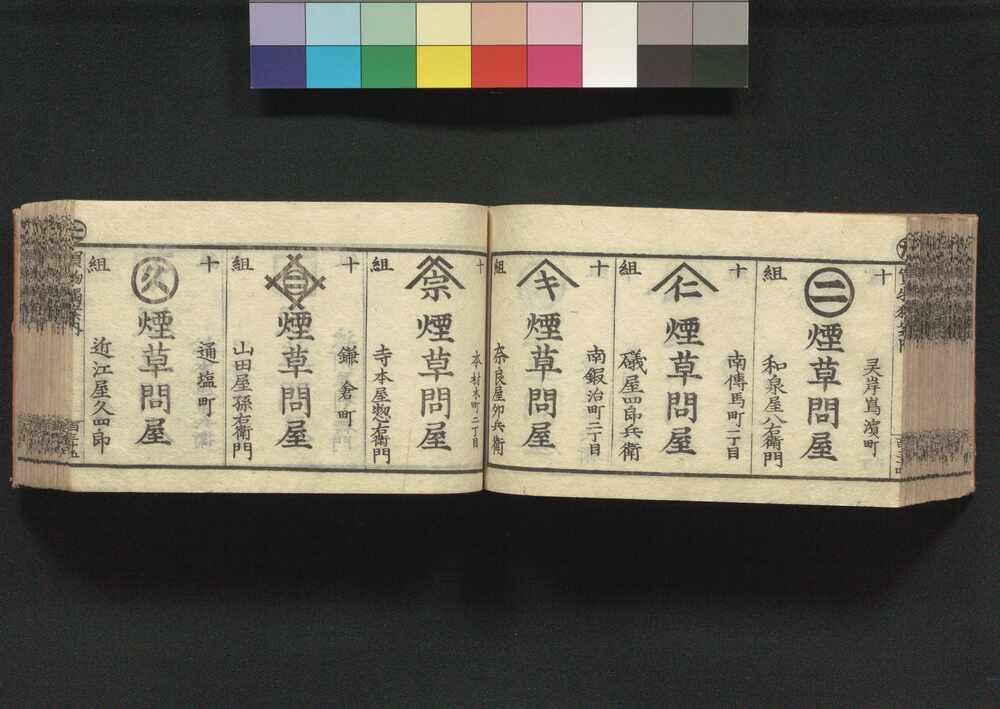 十
灵岸嶌濱町
㊁
煙草問屋
組
和泉屋八右衛門
十
南傳馬町一丁目
仁
煙草問屋
組
礒屋四郎兵衛
十
南鍜治町二丁目
キ
煙草問屋
組
奈良屋卯兵衛
十
本材木町二丁目
宗
煙草問屋
組
寺本屋惣右衛門
十
鎌倉町
煙草問屋
組
山田屋孫右衛門
十
通塩町
久
煙草問屋
組
近江屋久四郎